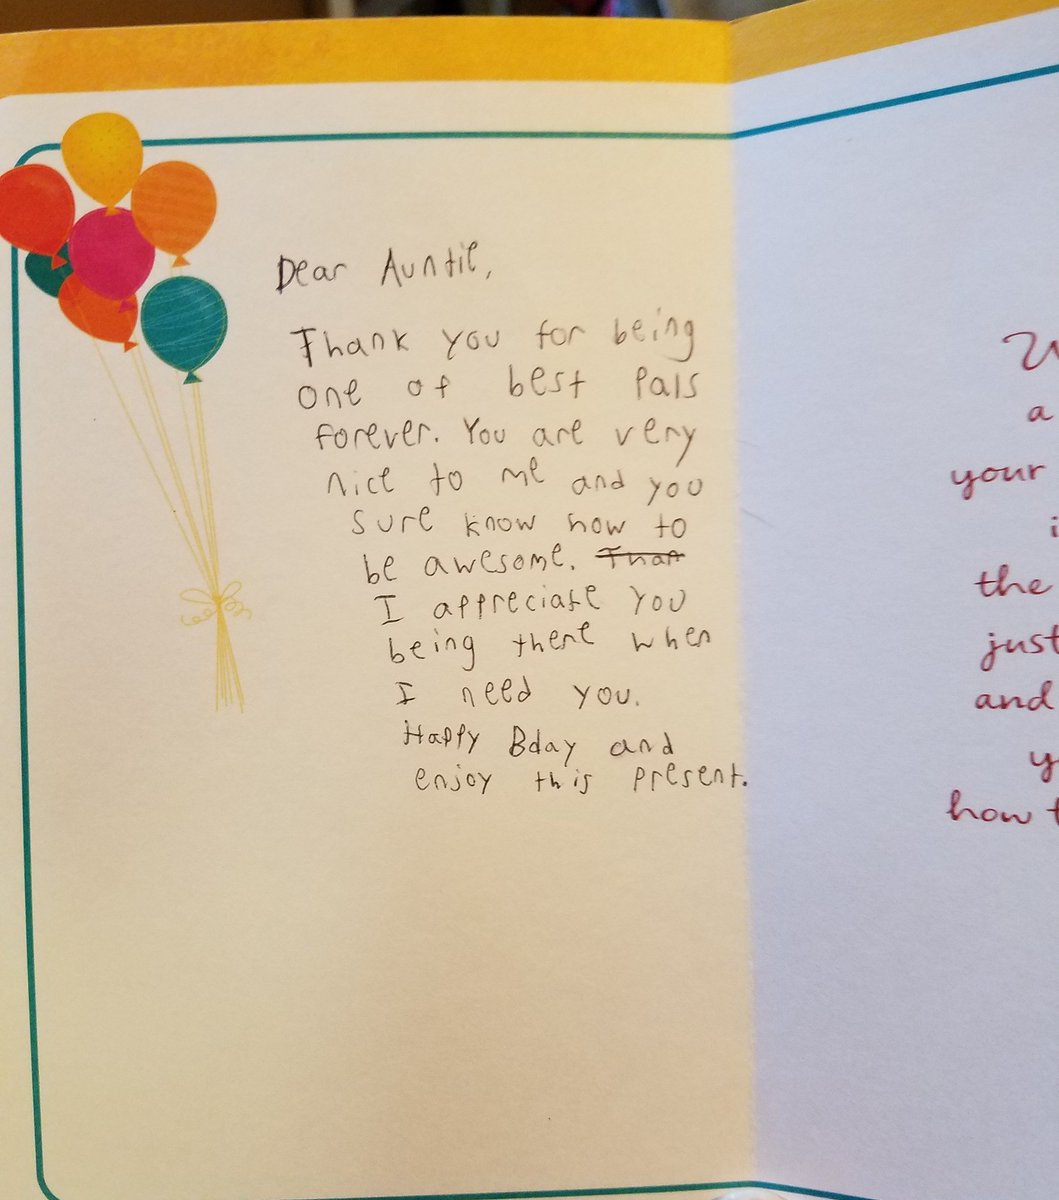 Dear Auntie,
Thank you for being
one of best Pals
forever. You are very
nice to me and you
sure know how to
be awesome. Than
I appreciate you
being there when
I need you.
Happy Bday and
enjoy this present.
a
your
the
just
and
how